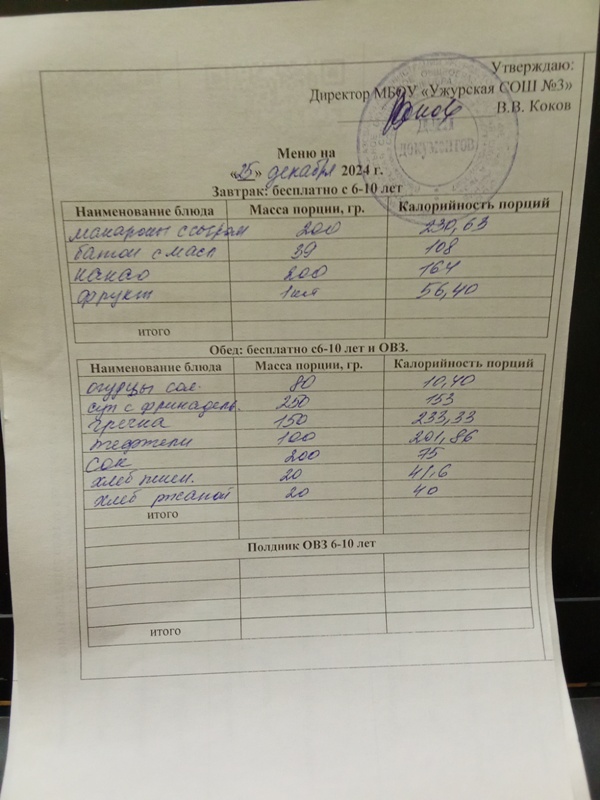 Утверждаю:
Директор МБОУ «Ужурская СОШ №3»
В.В. Коков
Для документов
Меню на
«25» декабря 2024 г.
Завтрак: бесплатно с 6-10 лет
Наименование блюда Масса порции, гр. Калорийность порций
макароны с сыром 200 230,63
батон с масл 39 108
какао 200 164
фрукт 1шт 56,40
итого
Обед: бесплатно с6-10 лет и ОВЗ.
Наименование блюда Масса порции, гр. Калорийность порций
огурцы сол. 80 10,40
суп с фрикадель. 250 153
гречка 150 233,33
тефтели 100 201,86
сок 200 75
хлеб пшен. 20 41,6
хлеб ржаной 20 40
итого
Полдник ОВЗ 6-10 лет
итого